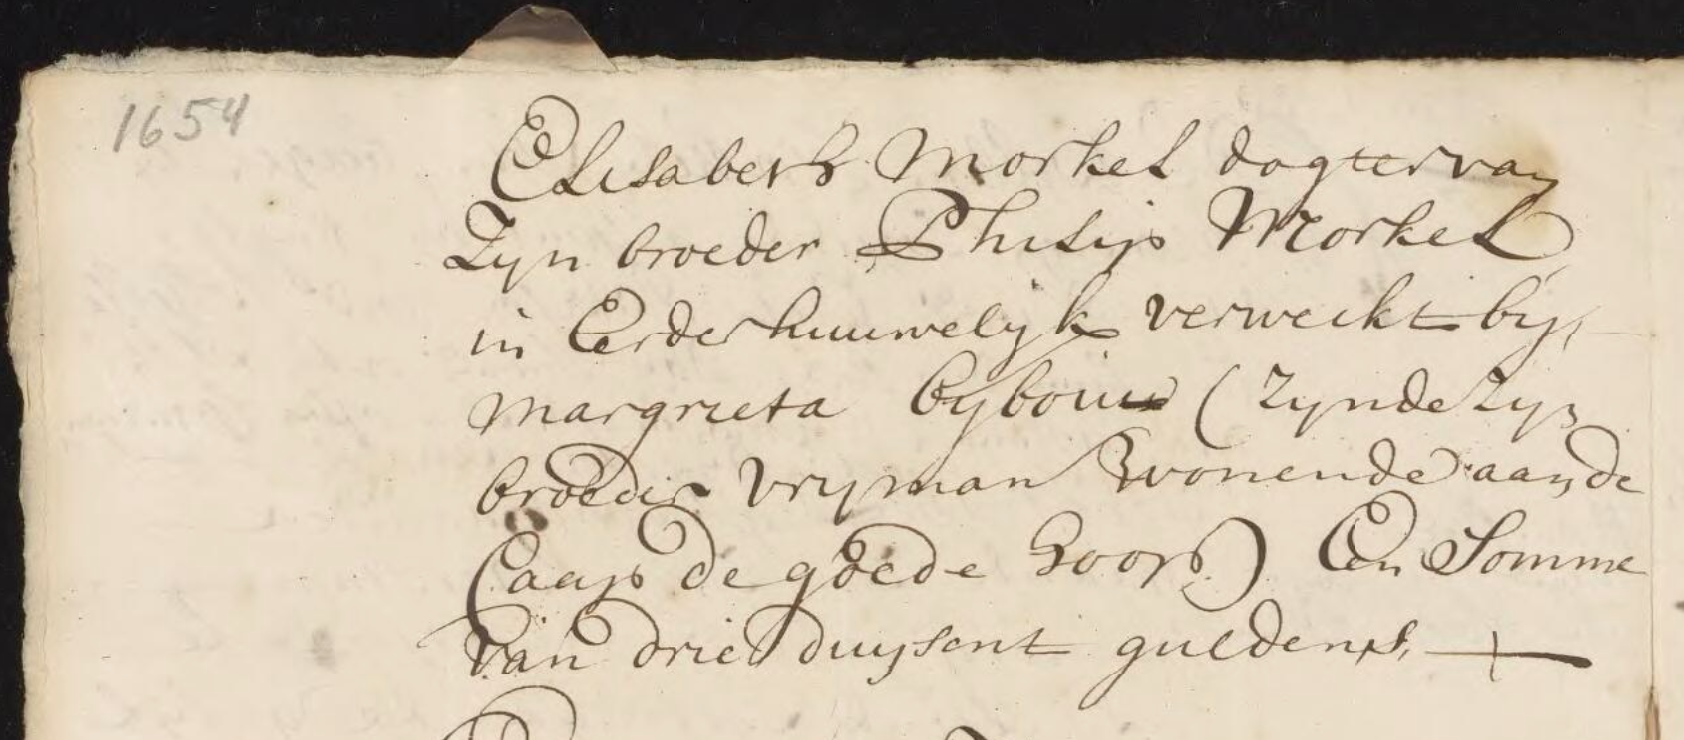 1654
Elisabeth Morkel dogter van
Zyn broeder Philip Morkel
in Eerder huuwelyk verweckt by,
margrieta bybouw (Zynde Zyn
broeder vryman wonende aan de
Caap de goede hoop) Een Somme
van drie duysent guldens,